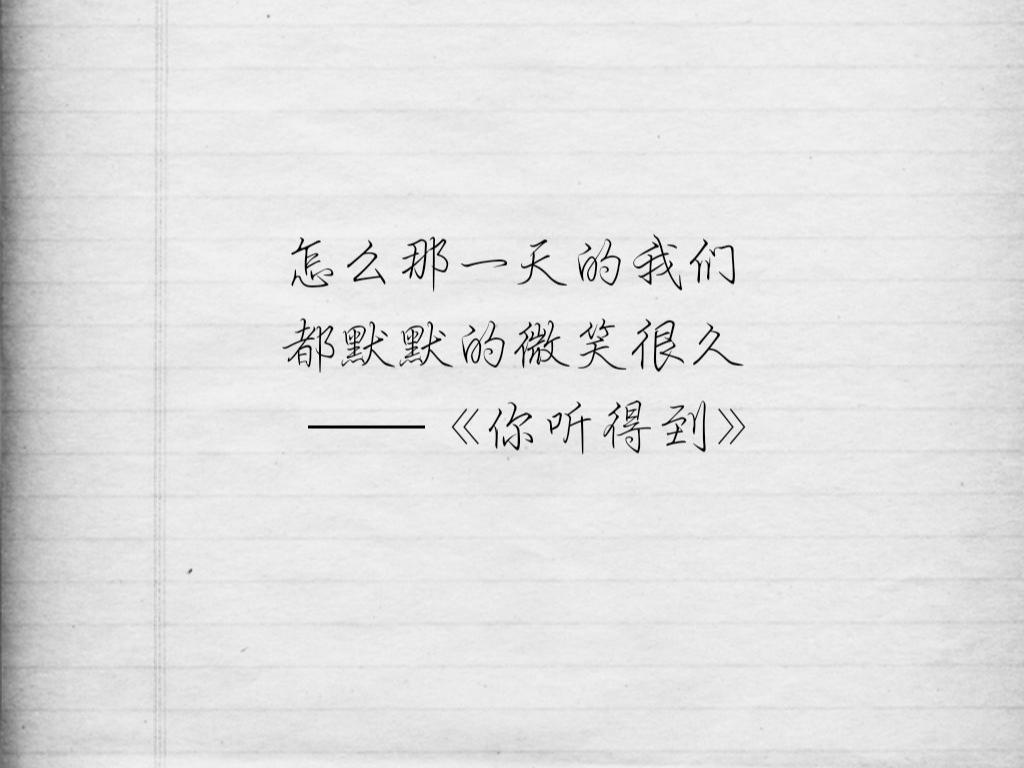 怎么那一天的我们
都默默的微笑很久
——《你听得到》